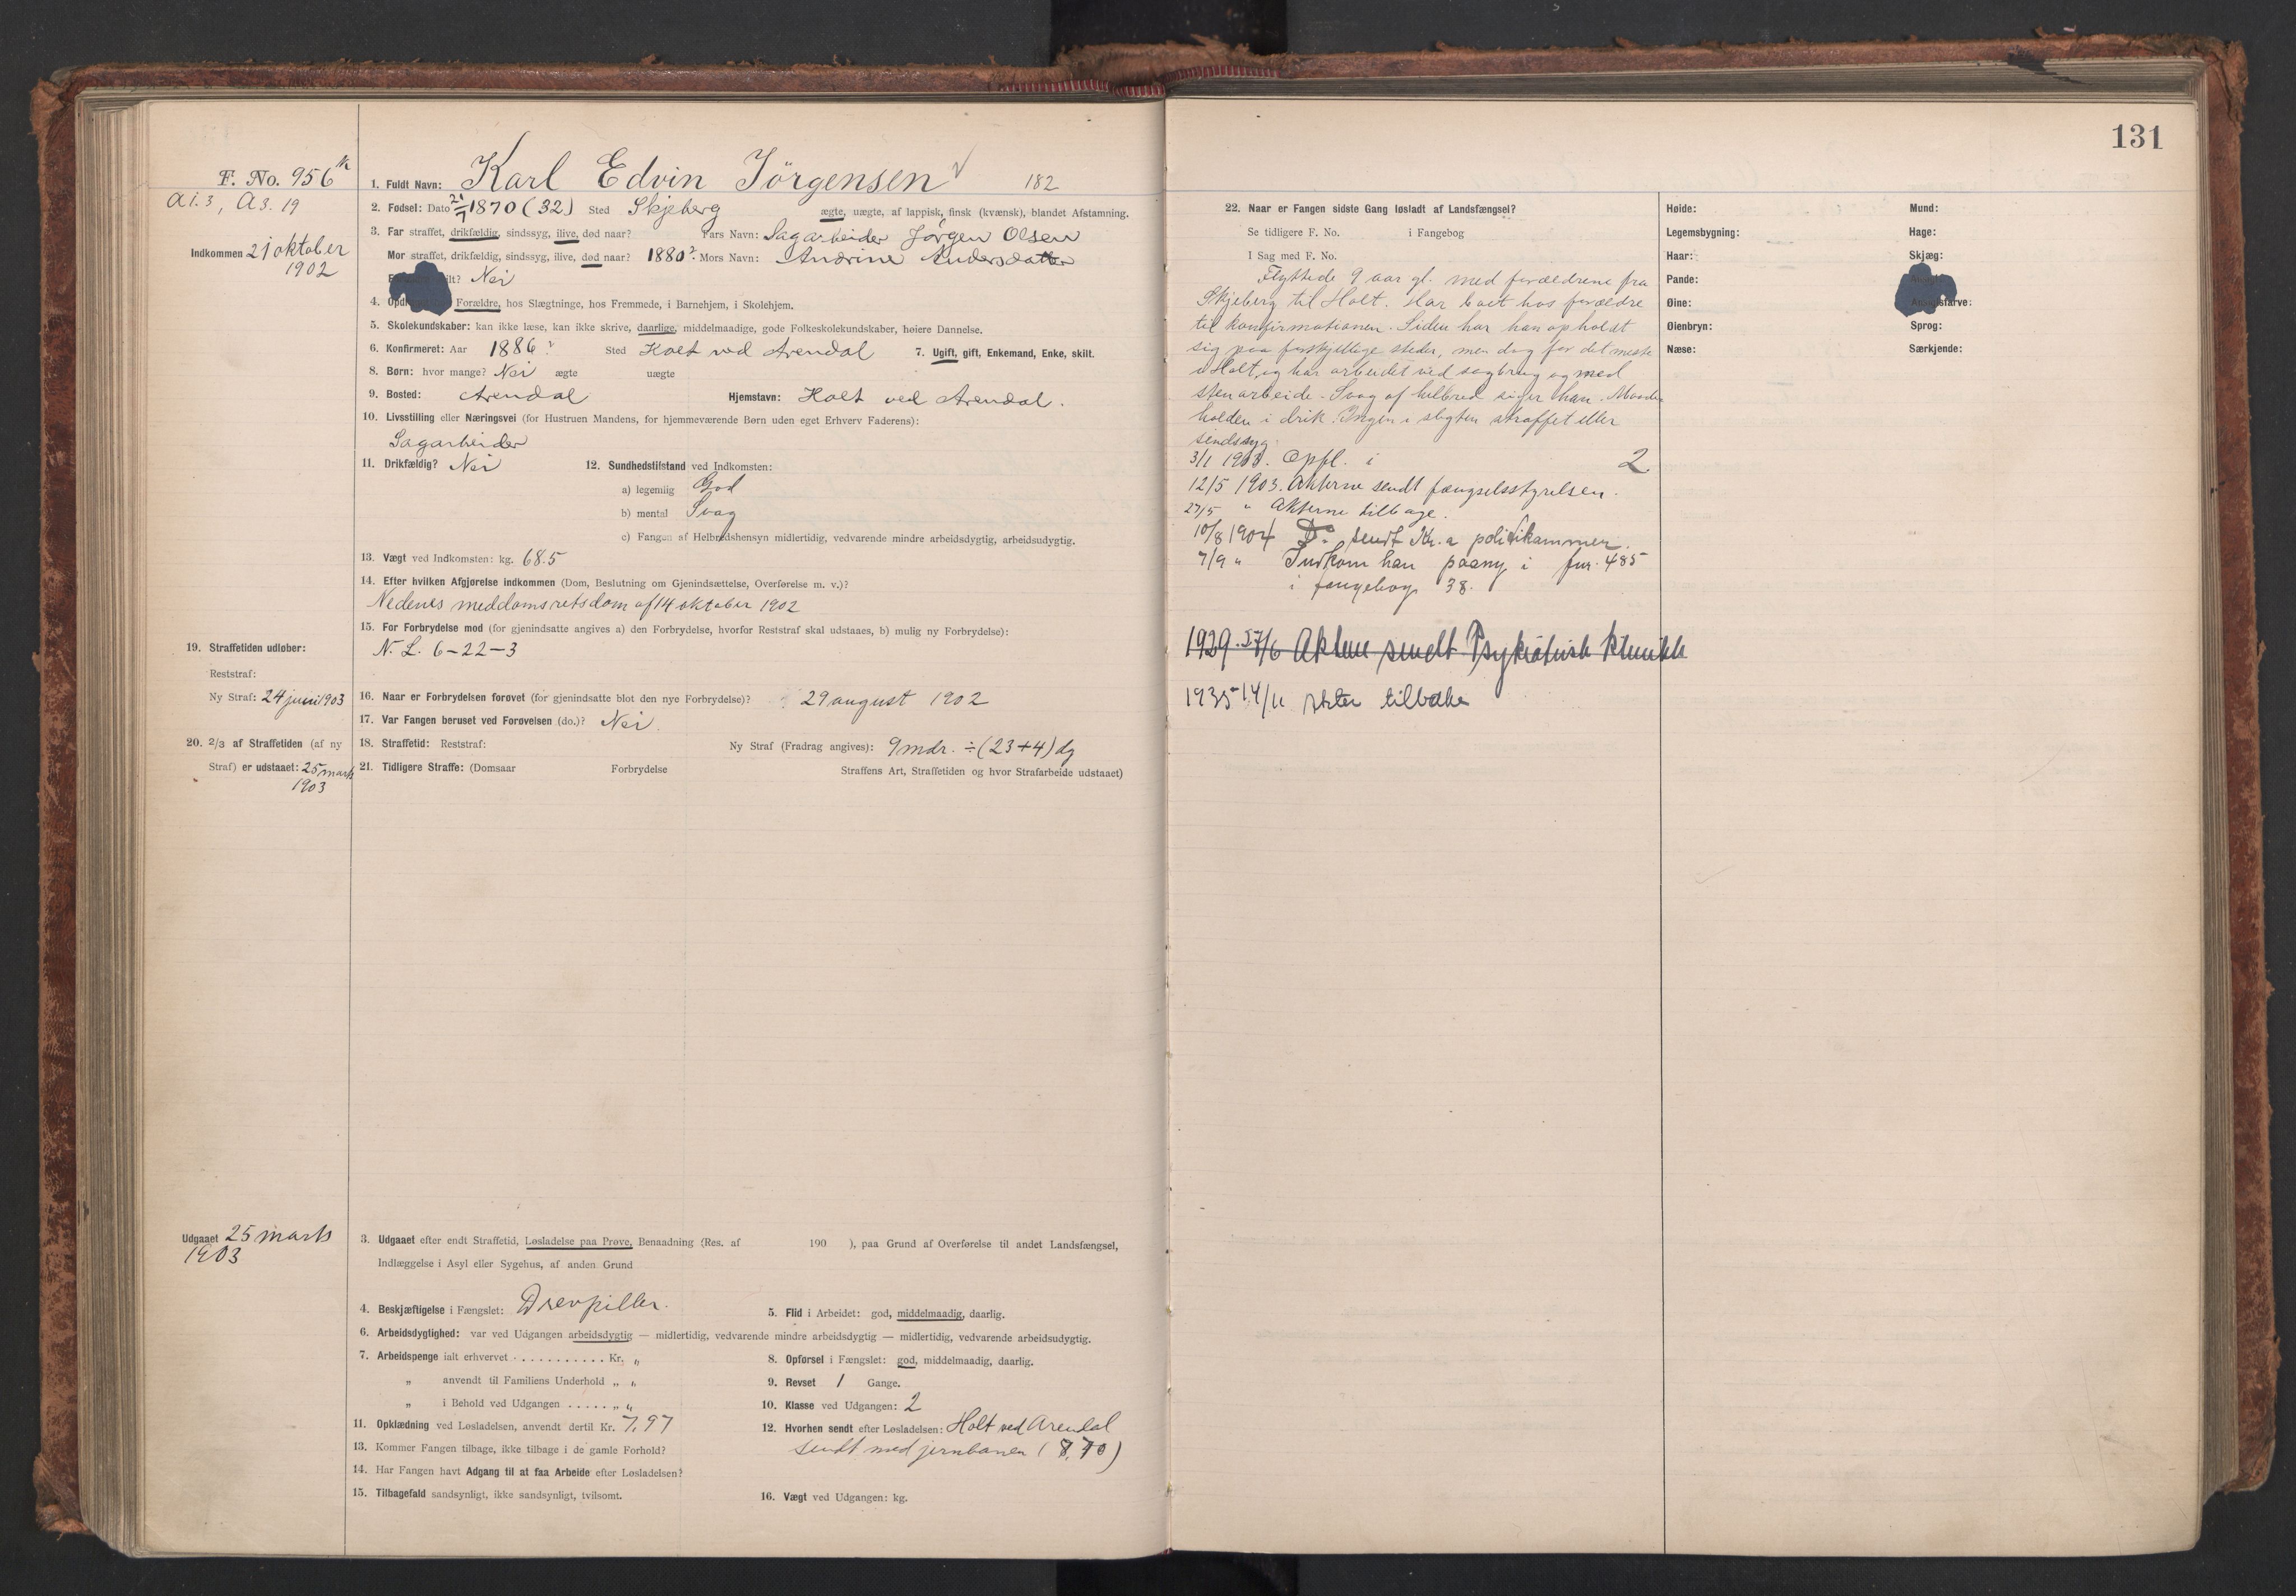 F. No. 956
A 1.3, A 3. 19
Indkommen 21 oktober
1902
1. Fuldt Navn: Karl Edvin Jörgensen 182
2. Fødsel: Dato 21/7 1870 (32) Sted Skjeberg ægte, uægte, af lappisk, finsk (kvænsk), blandet Afstamning.
3. Far straffet, drikfældig, sindssyg, ilive, død naar? Fars Navn: Sagarbeider Jörgen Olsen
Mor straffet, drikfældig, sindssyg, ilive, død naar? 1880? Mors Navn: Andrine Andersdatter
Nei
4. Forældre, hos Slægtninge, hos Fremmede, i Barnehjem, i Skolehjem.
5. Skolekundskaber: kan ikke læse, kan ikke skrive, daarlige, middelmaadige, gode Folkeskolekundskaber, høiere Dannelse.
6. Konfirmeret: Aar 1886? Sted Holt ved Arendal 7. Ugift, gift, Enkemand, Enke, skilt.
8. Børn: hvor mange? Nei ægte uægte
9. Bosted: Arendal Hjemstavn: Holt ved Arendal.
10. Livsstilling eller Næringsvei (for Hustruen Mandens, for hjemmeværende Børn uden eget Erhverv Faderens):
Sagarbeider
11. Drikfældig? Nei 12. Sundhedstilstand ved Indkomsten:
a) legemlig God
b) mental Svag
c) Fangen af Helbredshensyn midlertidig, vedvarende mindre arbeidsdygtig, arbeidsudygtig.
13. Vægt ved Indkomsten: kg. 68.5
14. Efter hvilken Afgjørelse indkommen (Dom, Beslutning om Gjenindsættelse, Overførelse m. v.)?
Nedenes meddomsretsdom af 14 oktober 1902
15. For Forbrydelse mod (for gjenindsatte angives a) den Forbrydelse, hvorfor Reststraf skal udstaaes, b) mulig ny Forbrydelse):
N. L. 6-22-3
19. Straffetiden udløber:
Reststraf:
Ny Straf: 24 juni 1903
16. Naar er Forbrydelsen forøvet (for gjenindsatte blot den nye Forbrydelse)? 29 august 1902
17. Var Fangen beruset ved Forøvelsen (do.)? Nei.
20. 2/3 af Straffetiden (af ny
Straf) er udstaaet: 25 marts
1903
18. Straffetid: Reststraf: Ny Straf (Fradrag angives): 9 mdr. ÷ (23+4) dg
21. Tidligere Straffe: (Domsaar Forbrydelse Straffens Art, Straffetiden og hvor Strafarbeide udstaaet)
Udgaaet 25 marts
1903
3. Udgaaet efter endt Straffetid, Løsladelse paa Prøve, Benaadning (Res. af 190 ), paa Grund af Overførelse til andet Landsfængsel,
Indlæggelse i Asyl eller Sygehus, af anden Grund
4. Beskjæftigelse i Fængslet: Drevpiller. 5. Flid i Arbeidet: god, middelmaadig, daarlig.
6. Arbeidsdygtighed: var ved Udgangen arbeidsdygtig — midlertidig, vedvarende mindre arbeidsdygtig — midlertidig, vedvarende arbeidsudygtig.
7. Arbeidspenge ialt erhvervet . . . . . . . . . . . Kr. „ 8. Opførsel i Fængslet: god, middelmaadig, daarlig.
„ anvendt til Familiens Underhold „ „ 9. Revset 1 Gange.
„ i Behold ved Udgangen . . . . . „ „ 10. Klasse ved Udgangen: 2
11. Opklædning ved Løsladelsen, anvendt dertil Kr. 7,97 12. Hvorhen sendt efter Løsladelsen: Holt ved Arendal
sendt med jernbanen (8,70)
13. Kommer Fangen tilbage, ikke tilbage i de gamle Forhold?
14. Har Fangen havt Adgang til at faa Arbeide efter Løsladelsen?
15. Tilbagefald sandsynligt, ikke sandsynligt, tvilsomt. 16. Vægt ved Udgangen: kg.
131
22. Naar er Fangen sidste Gang løsladt af Landsfængsel?
Se tidligere F. No. i Fangebog
I Sag med F. No.
Flyttede 9 aar gl. med forældrene fra
Skjeberg til Holt. Har boet hos forældre
til konfirmationen. Siden har han opholdt
sig paa forskjellige steder, men dog for det meste
i Holt, og har arbeidet ved sagbrug og med
stenarbeide. Svag af helbred siger han. Maade-
holden i drik. Ingen i slegten straffet eller
sindssyg.
3/1 1903. Opfl. i 2
12/5 1903. Akterne sendt fængselsstyrelsen.
27/5 " Akterne tilbage.
10/8 1904 Do sendt Kr.a politikammer.
7/9 " Indkom han paany i fnr. 485
i fangebog 38.
1929. 27/6 Aktene sendt Psykiatrisk Klinikk
1935 14/11 akter tilbake
Høide:
Legemsbygning:
Haar:
Pande:
Øine:
Øienbryn:
Næse:
Mund:
Hage:
Skjæg:
Ansigt:
Ansigtsfarve:
Sprog:
Særkjende: